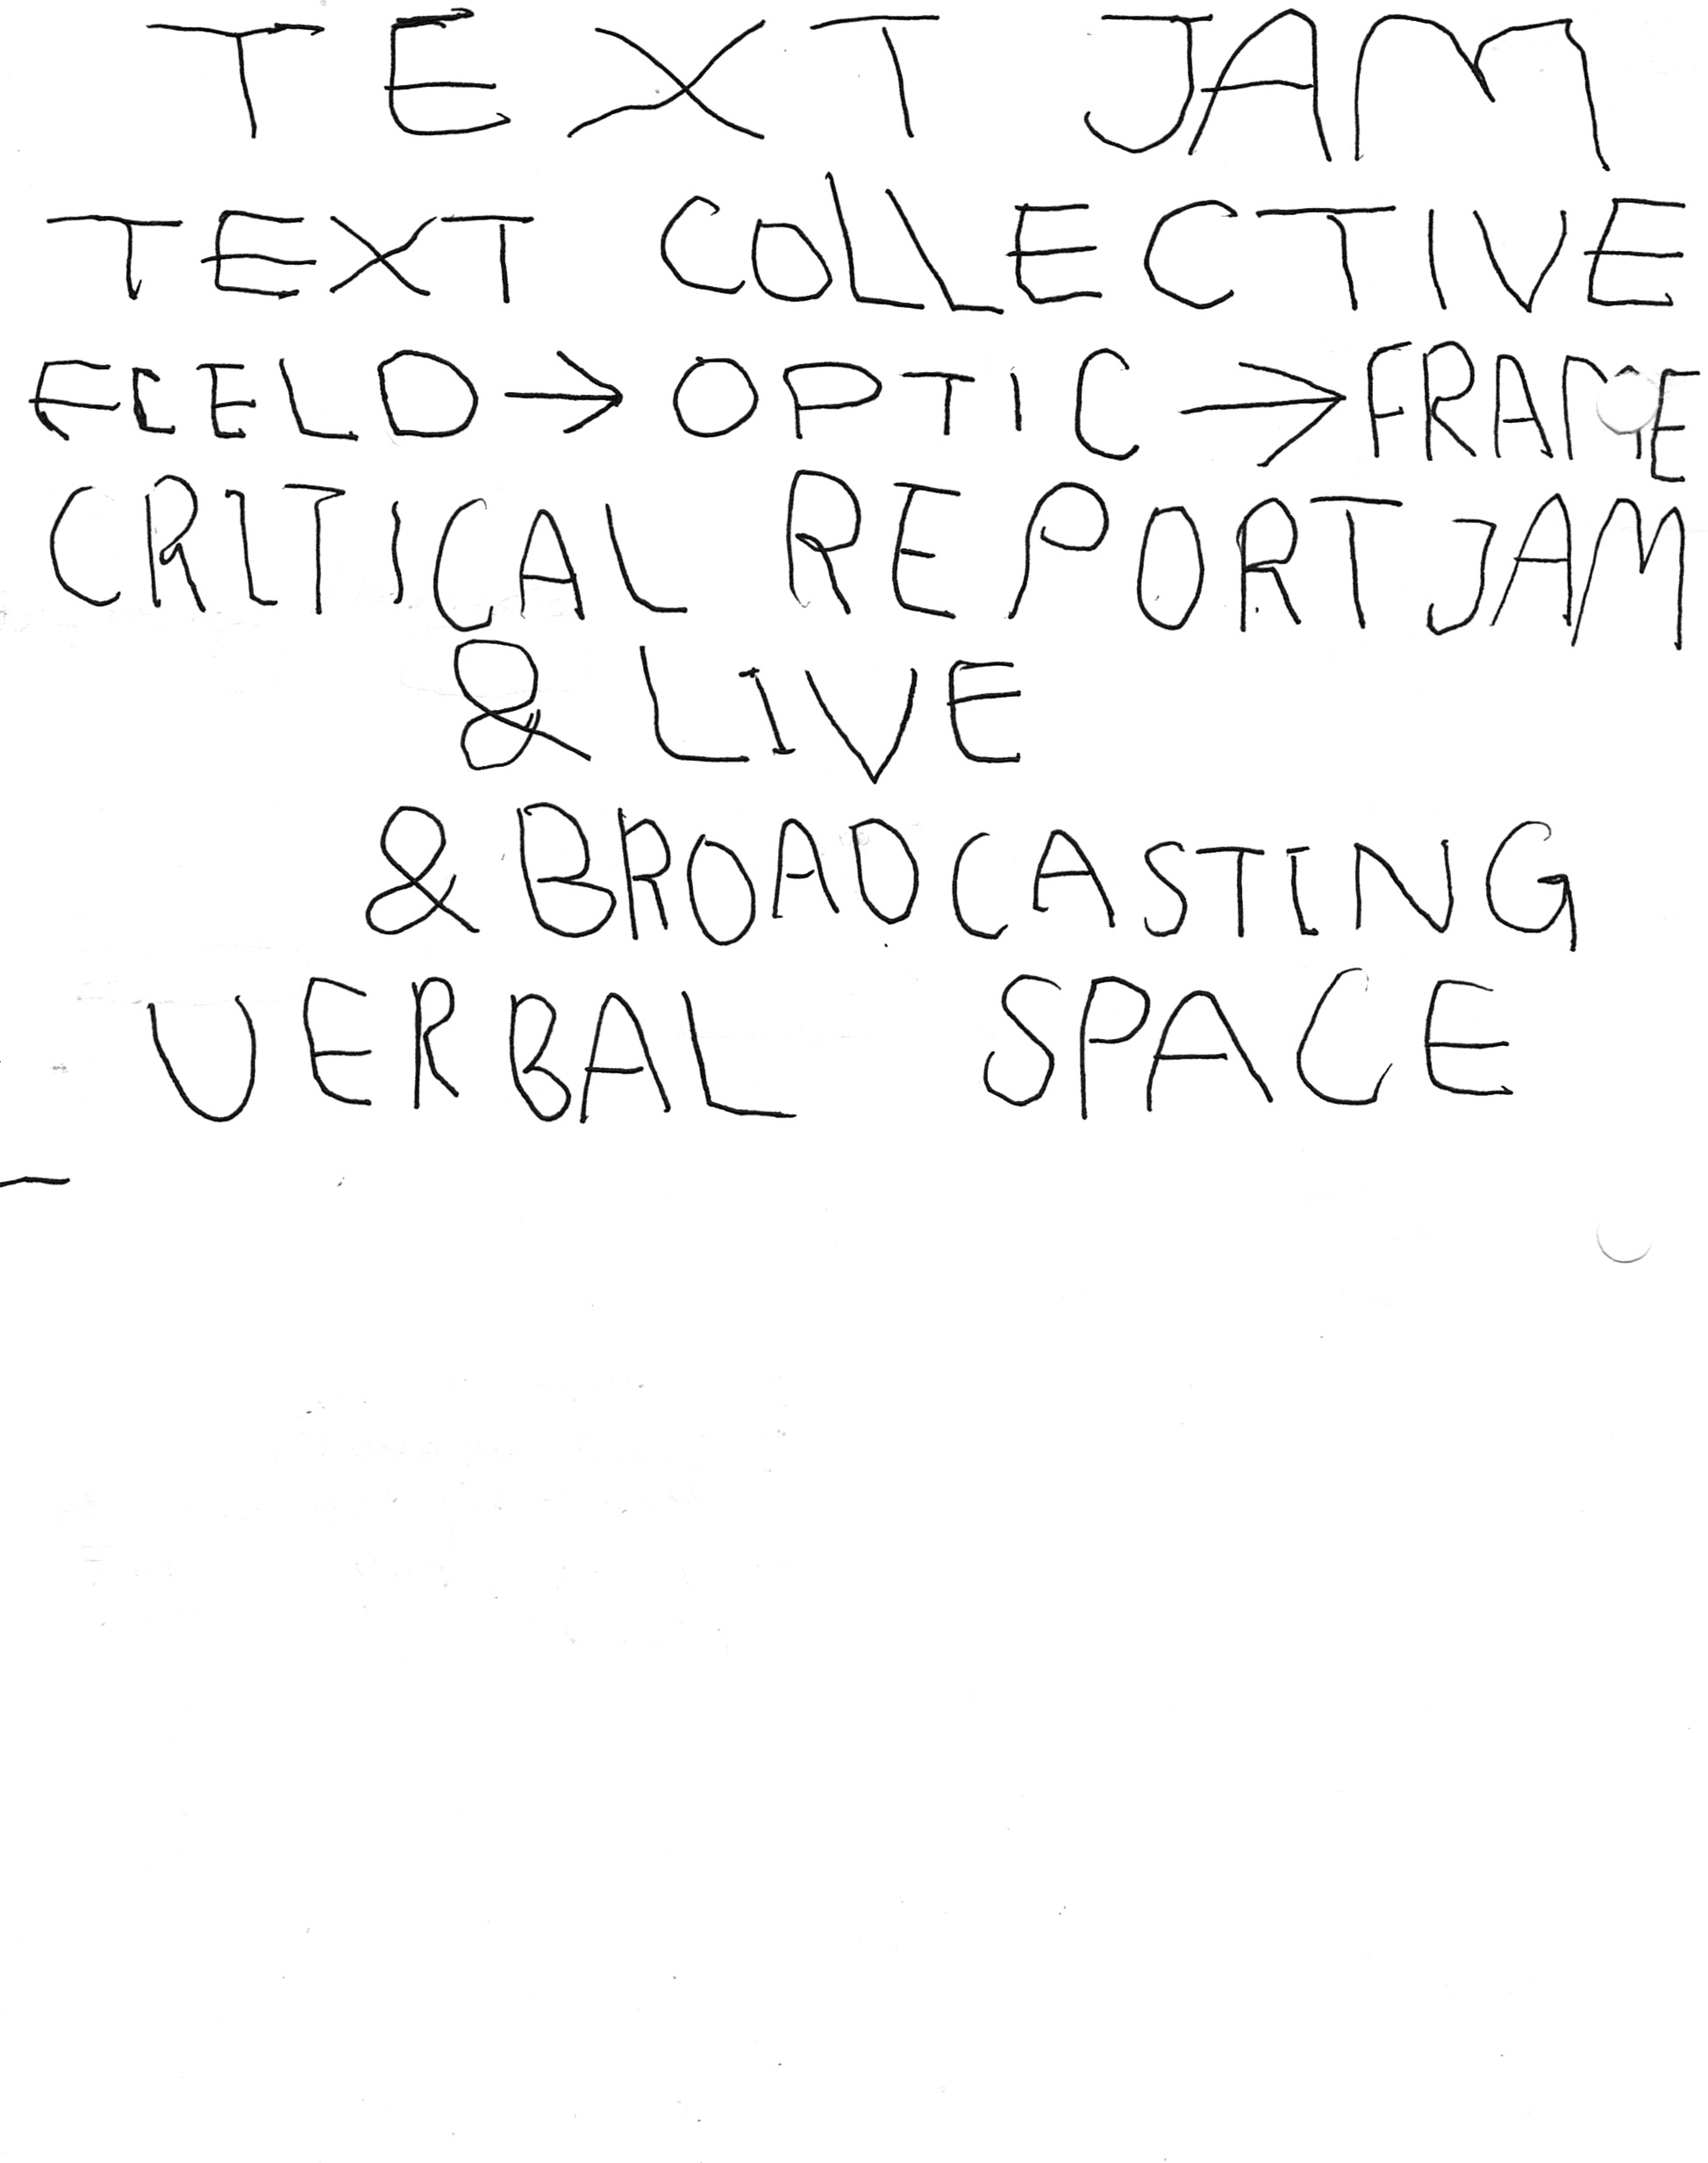 TEXT JAM
TEXT COLLECTIVE
FIELD → OPTIC → FRAME
CRITICAL REPORT JAM
& LIVE
& BROADCASTING
VERBAL SPACE